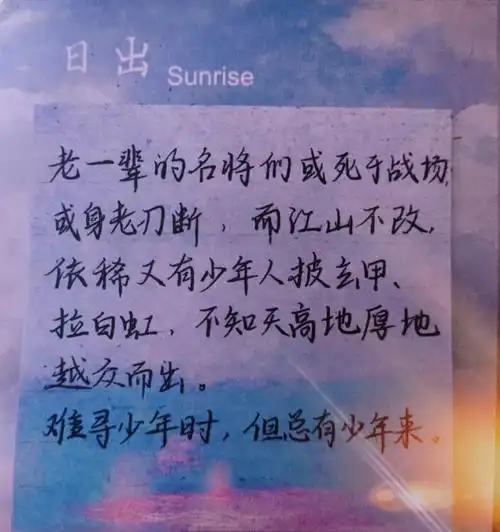 日出 Sunrise
老一辈的名将们或死于战场,
或身老刃断，而江山不改，
依稀又有少年人披玄甲、
拉白虹，不知天高地厚地
越众而出。
难寻少年时，但总有少年来。